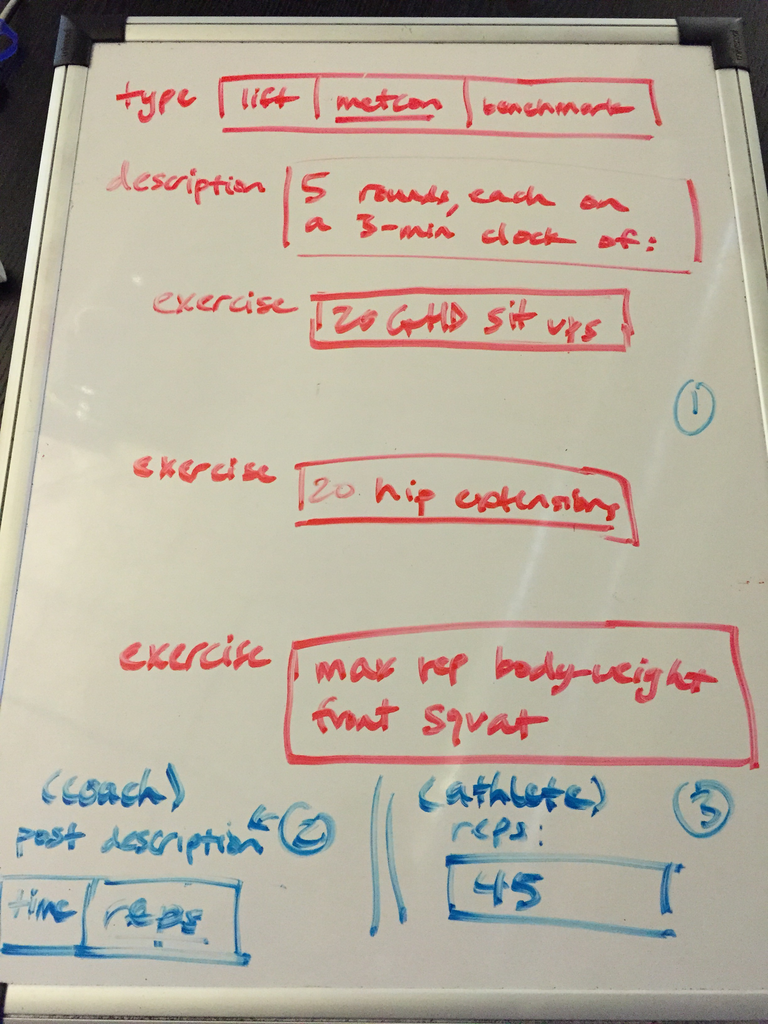 type lift metcon benchmark
description 5 rounds, each on
a 3-min clock of:
exercise 20 GHD sit ups
1
exercise 20 hip extensions
exercise max rep body-weight
front squat
(coach)
post description ← 2
time reps
(athlete) 3
reps:
45